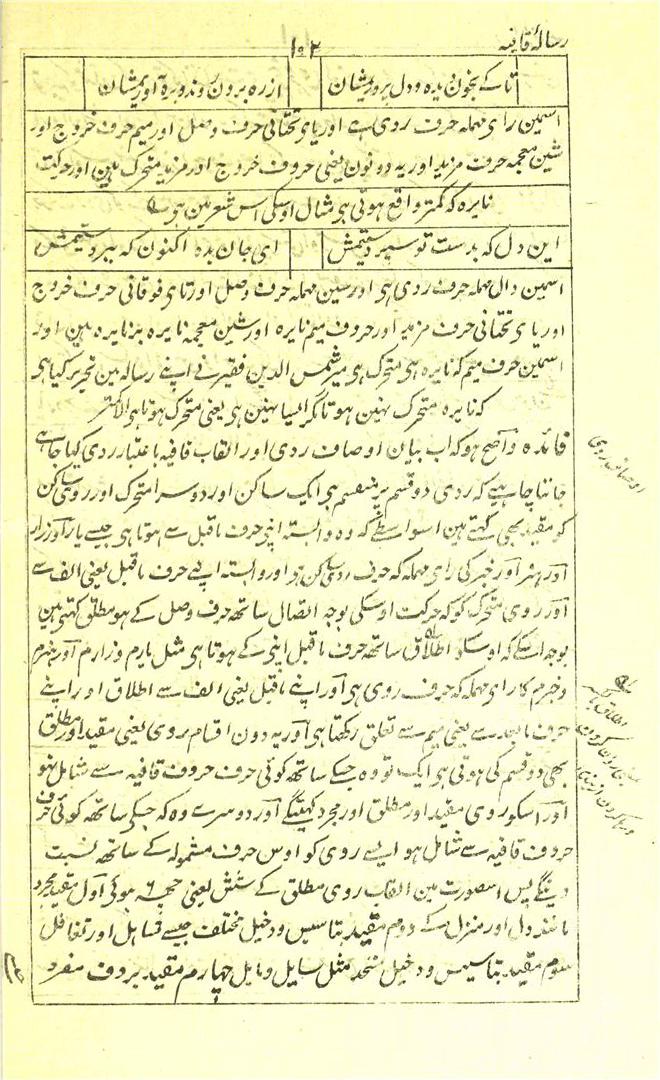 رسالۂ قافیہ
۱۰۲
تا کے بخون دیدہ و دل پروریمشان
از رہ برون روند و برہ آوریمشان
اسمین رای مہملہ حرف روی ہے اور یای تحتانی حرف وصل اور میم حرف خروج اور
شین معجمہ حرف مزید اور یہ دونون یعنی حروف خروج اور مزید متحرک ہین اور حرکت
نایرہ کہ کمتر واقع ہوتی ہی مثال اوسکی اس شعر مین ہو
این دل کہ بدست تو سپردستیمش
ای جان بدہ اکنون کہ ببردستیمش
اسمین دال مہملہ حرف روی ہی اور سین مہملہ حرف وصل اور تای فوقانی حرف خروج
اور یای تحتانی حرف مزید اور حروف میم نایرہ اور شین معجمہ نایرہ بر نایرہ ہین اور
اسمین حرف میم کہ نایرہ ہی متحرک ہی میر شمس الدین فقیر نے اپنے رسالہ مین تحریر کیا ہی
کہ نایرہ متحرک نہین ہوتا مگر ایسا نہین ہی یعنی متحرک ہوتا ہی الا کمتر
فائدہ واضح ہو کہ اب بیان اوصاف روی اور القاب قافیہ باعتبار روی کیا جاتا ہے
جاننا چاہیے کہ روی دو قسم پر منقسم ہی ایک ساکن اور دوسرا متحرک اور روی ساکن
کو مقید بھی کہتے ہین اسواسطے کہ وہ وابستہ اپنی حرف ماقبل سے ہوتا ہی جیسے یار اور زار
اور ہنر اور خبر کی رای مہملہ کہ حرف روی ساکن ہی اور وابستہ اپنے حرف ماقبل یعنی الف سے
اور روی متحرک کو کہ حرکت اوسکی بوجہ اتصال ساتھ حرف وصل کے ہو مطلق کہتی ہین
بوجہ اسکے کہ اوسکو اطلاق ساتھ حرف ماقبل اپنی کے ہوتا ہی مثل یارم و زارم اور ہنرم
و خبرم کا رای مہملہ کہ حرف روی ہی اور اپنے ماقبل یعنی الف سے اطلاق اور اپنے
حرف مابعد سے یعنی میم سے تعلق رکھتا ہی اور یہ دون اقسام روی یعنی مقید اور مطلق
بھی دو قسم کی ہوتی ہی ایک تو وہ جسکے ساتھ کوئی حرف حروف قافیہ سے شامل نہو
اور اسکو روی مقید اور مطلق اور مجرد کہینگے اور دوسرے وہ کہ جسکی ساتھ کوئی حرف
حروف قافیہ سے شامل ہو ایسے روی کو اوس حرف مشمولہ کے ساتھ نسبت
دینگے پس اسصورت مین القاب روی مطلق کے شش یعنی چھہ ۶ ہوئی اول مقید مجرد
مانند دل اور منزل کے دوم مقید بتاسیس و دخیل مختلف جیسے تساہل اور تغافل
سوم مقید بتاسیس و دخیل متحد مثل سایل و مایل چہارم مقید بردف مفرد
اوصاف روی